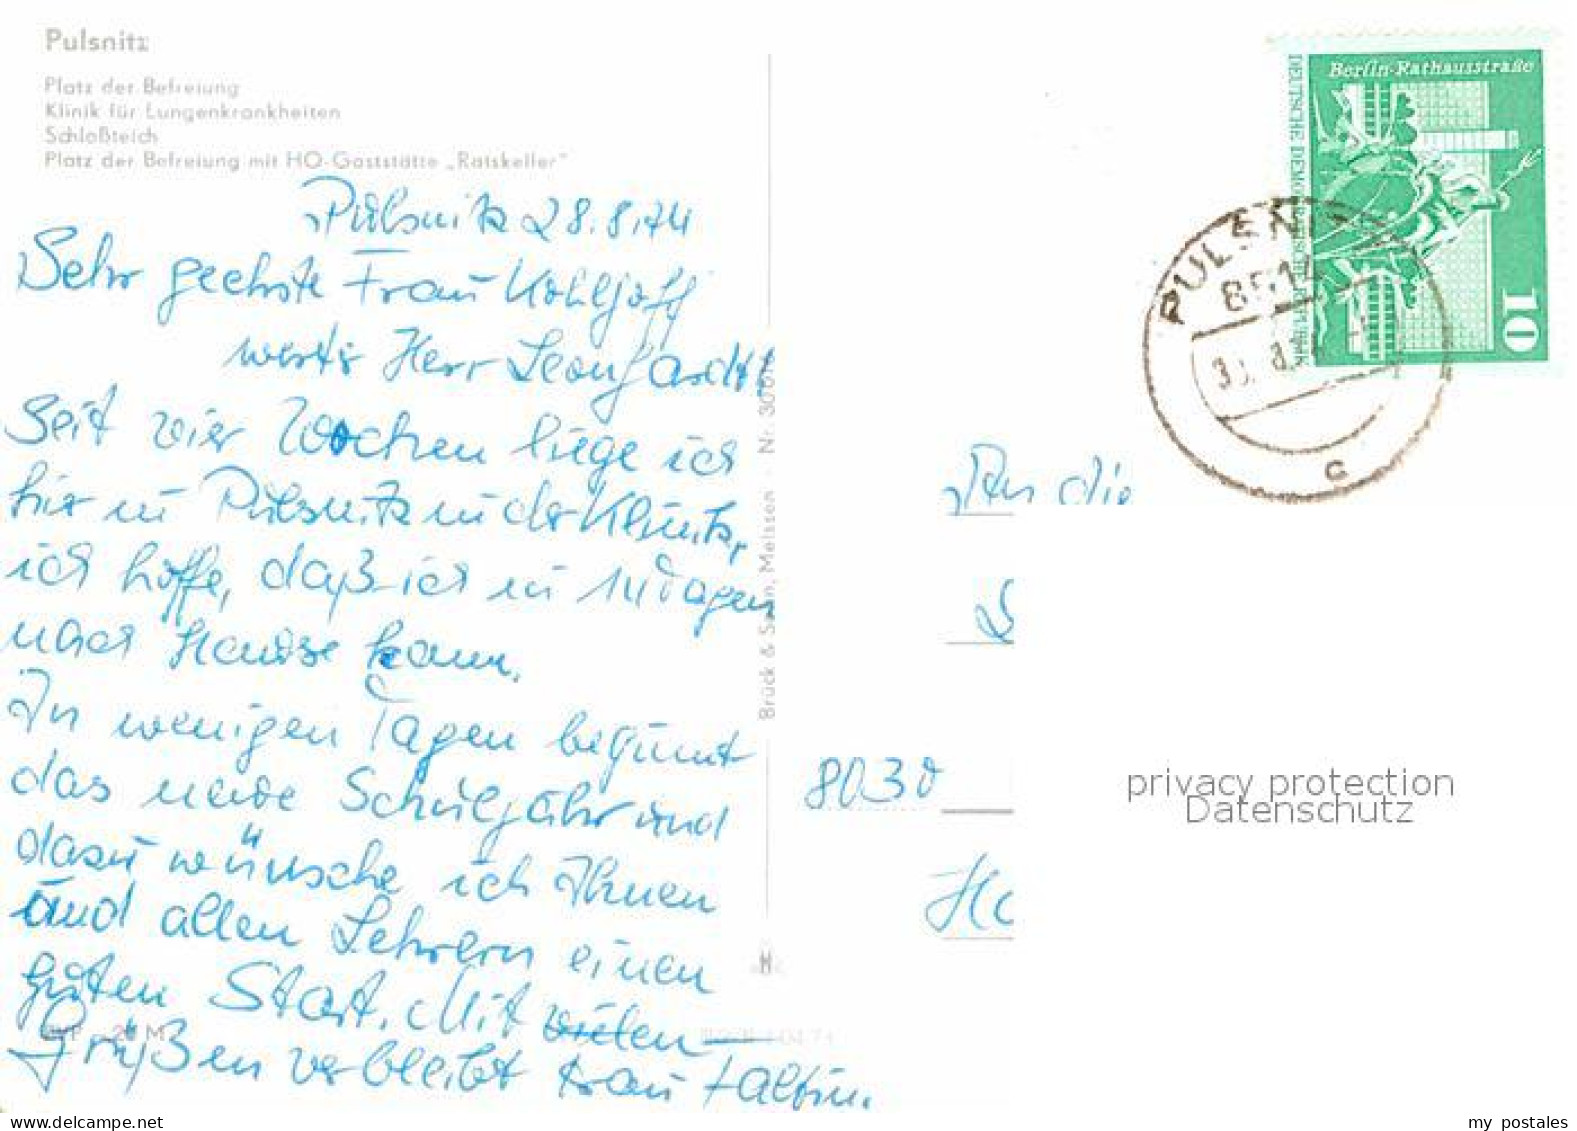 Pulsnitz
Platz der Befreiung
Klinik für Lungenkrankheiten
Schloßteich
Platz der Befreiung mit HO-Gaststätte „Ratskeller"
Pulsnitz 28.8.74
Sehr geehrte Frau Kohljoff
werter Herr Leonhardt!
Seit vier Wochen liege ich
hier in Pulsnitz in der Klinik,
ich hoffe, daß ich in 14 Tagen
nach Hause kann.
In wenigen Tagen beginnt
das neue Schuljahr und
dazu wünsche ich Ihnen
und allen Lehrern einen
guten Start. Mit vielen
Grüßen verbleibt Frau Faltin.
Brück & Sohn, Meissen · Nr.
Berlin-Rathausstraße
DEUTSCHE DEMOKRATISCHE REPUBLIK
10
PULSNITZ
8514
c
An die
8030
privacy protection
Datenschutz
my postales
www.delcampe.net